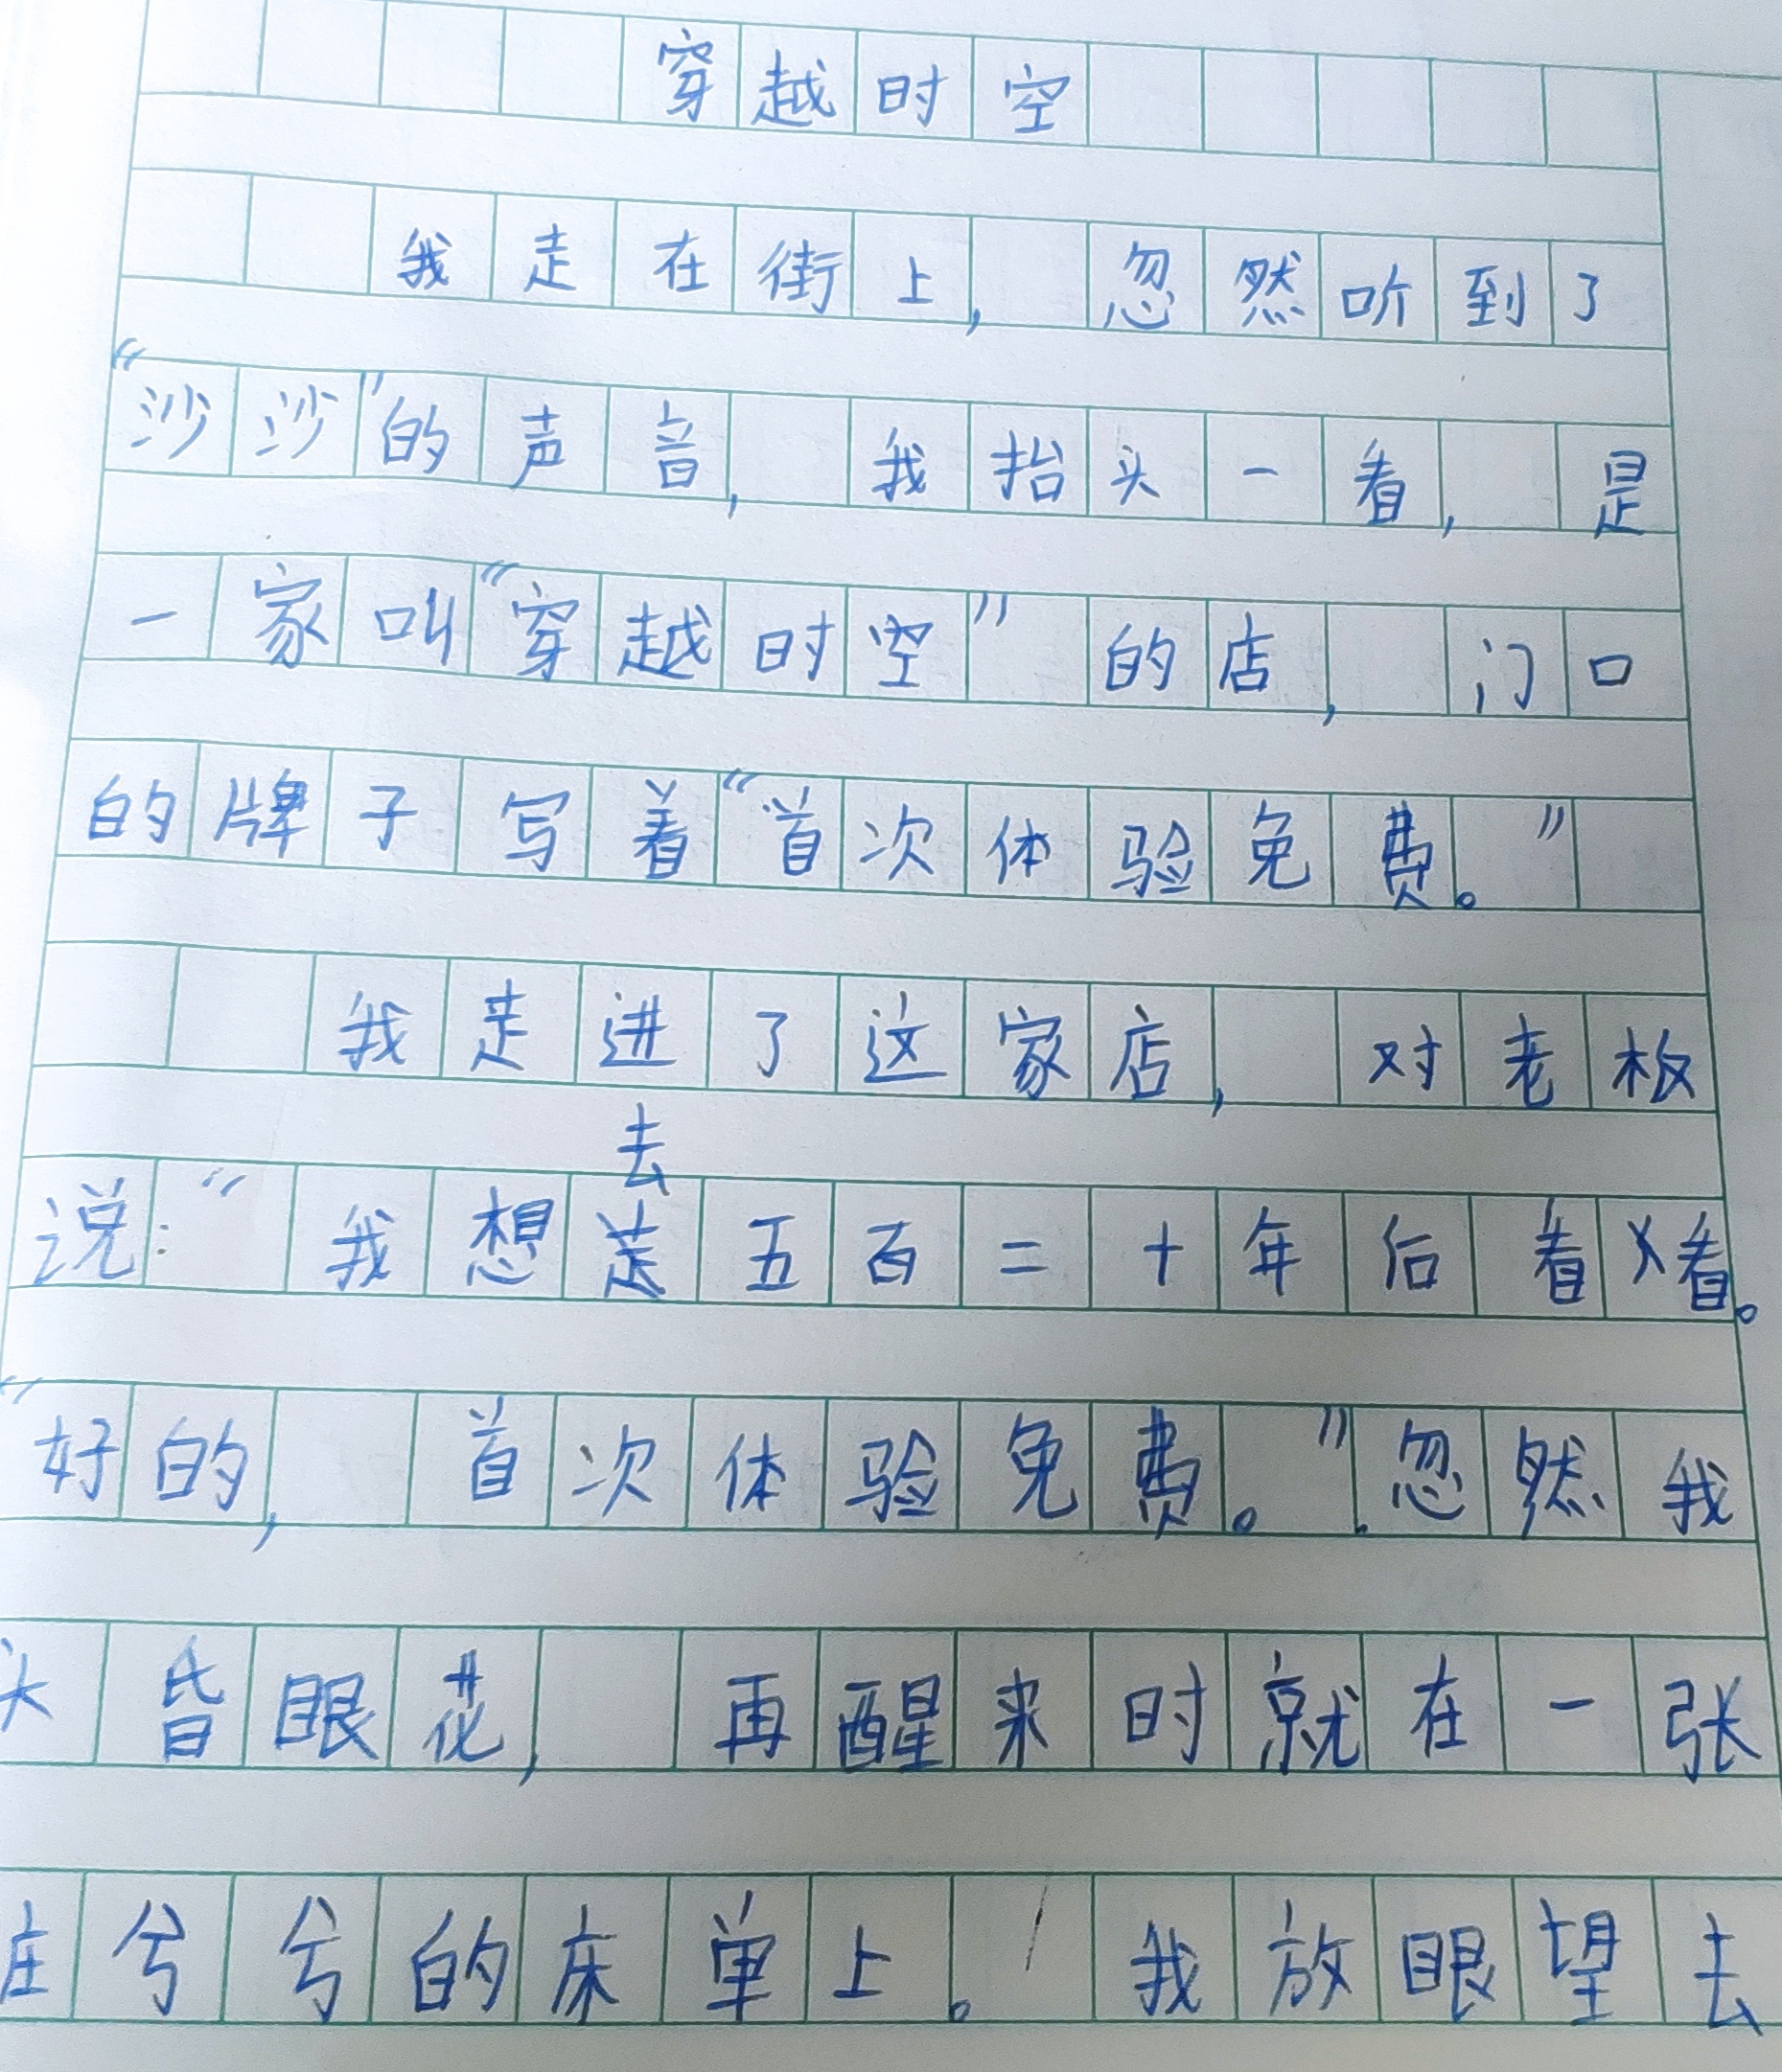 穿越时空
我走在街上，忽然听到了
“沙沙”的声音，我抬头一看，是
一家叫“穿越时空”的店，门口
的牌子写着“首次体验免费。”
我走进了这家店，对老板
去
说：“我想走五百二十年后看看。
“好的，首次体验免费。”忽然我
头昏眼花，再醒来时就在一张
兮兮的床单上。我放眼望去